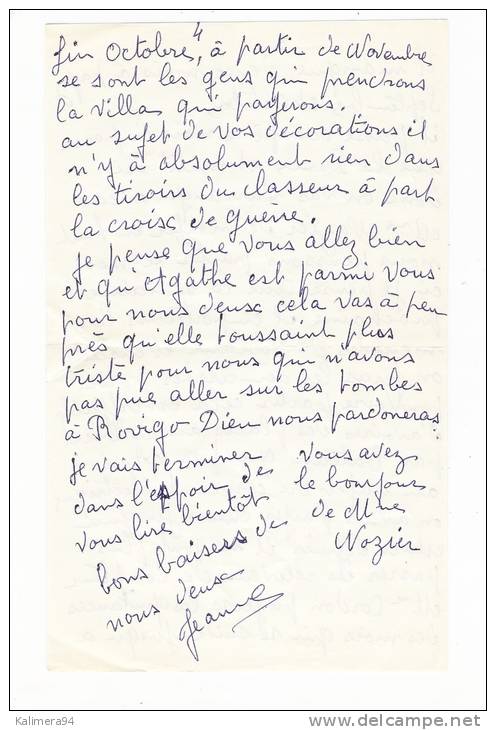 4
fin Octobre, à partir de Novembre
se sont les gens qui prendrons
la villa qui payerons.
au sujet de vos décorations il
n'y à absolument rien dans
les tiroirs du classeur à part
la croix de guerre.
je pense que vous allez bien
et qu'Agathe est parmi vous
pour nous deux cela vas à peu
près qu'elle toussaint plus
triste pour nous qui n'avons
pas pue aller sur les tombes
à Rovigo Dieu nous pardoneras
je vais terminer
dans l'espoir de
vous lire bientôt
bons baisers de
nous deux
Jeanne
vous avez
le bonjour
de Mme
Nozier
Kalimera94
www.delcampe.net